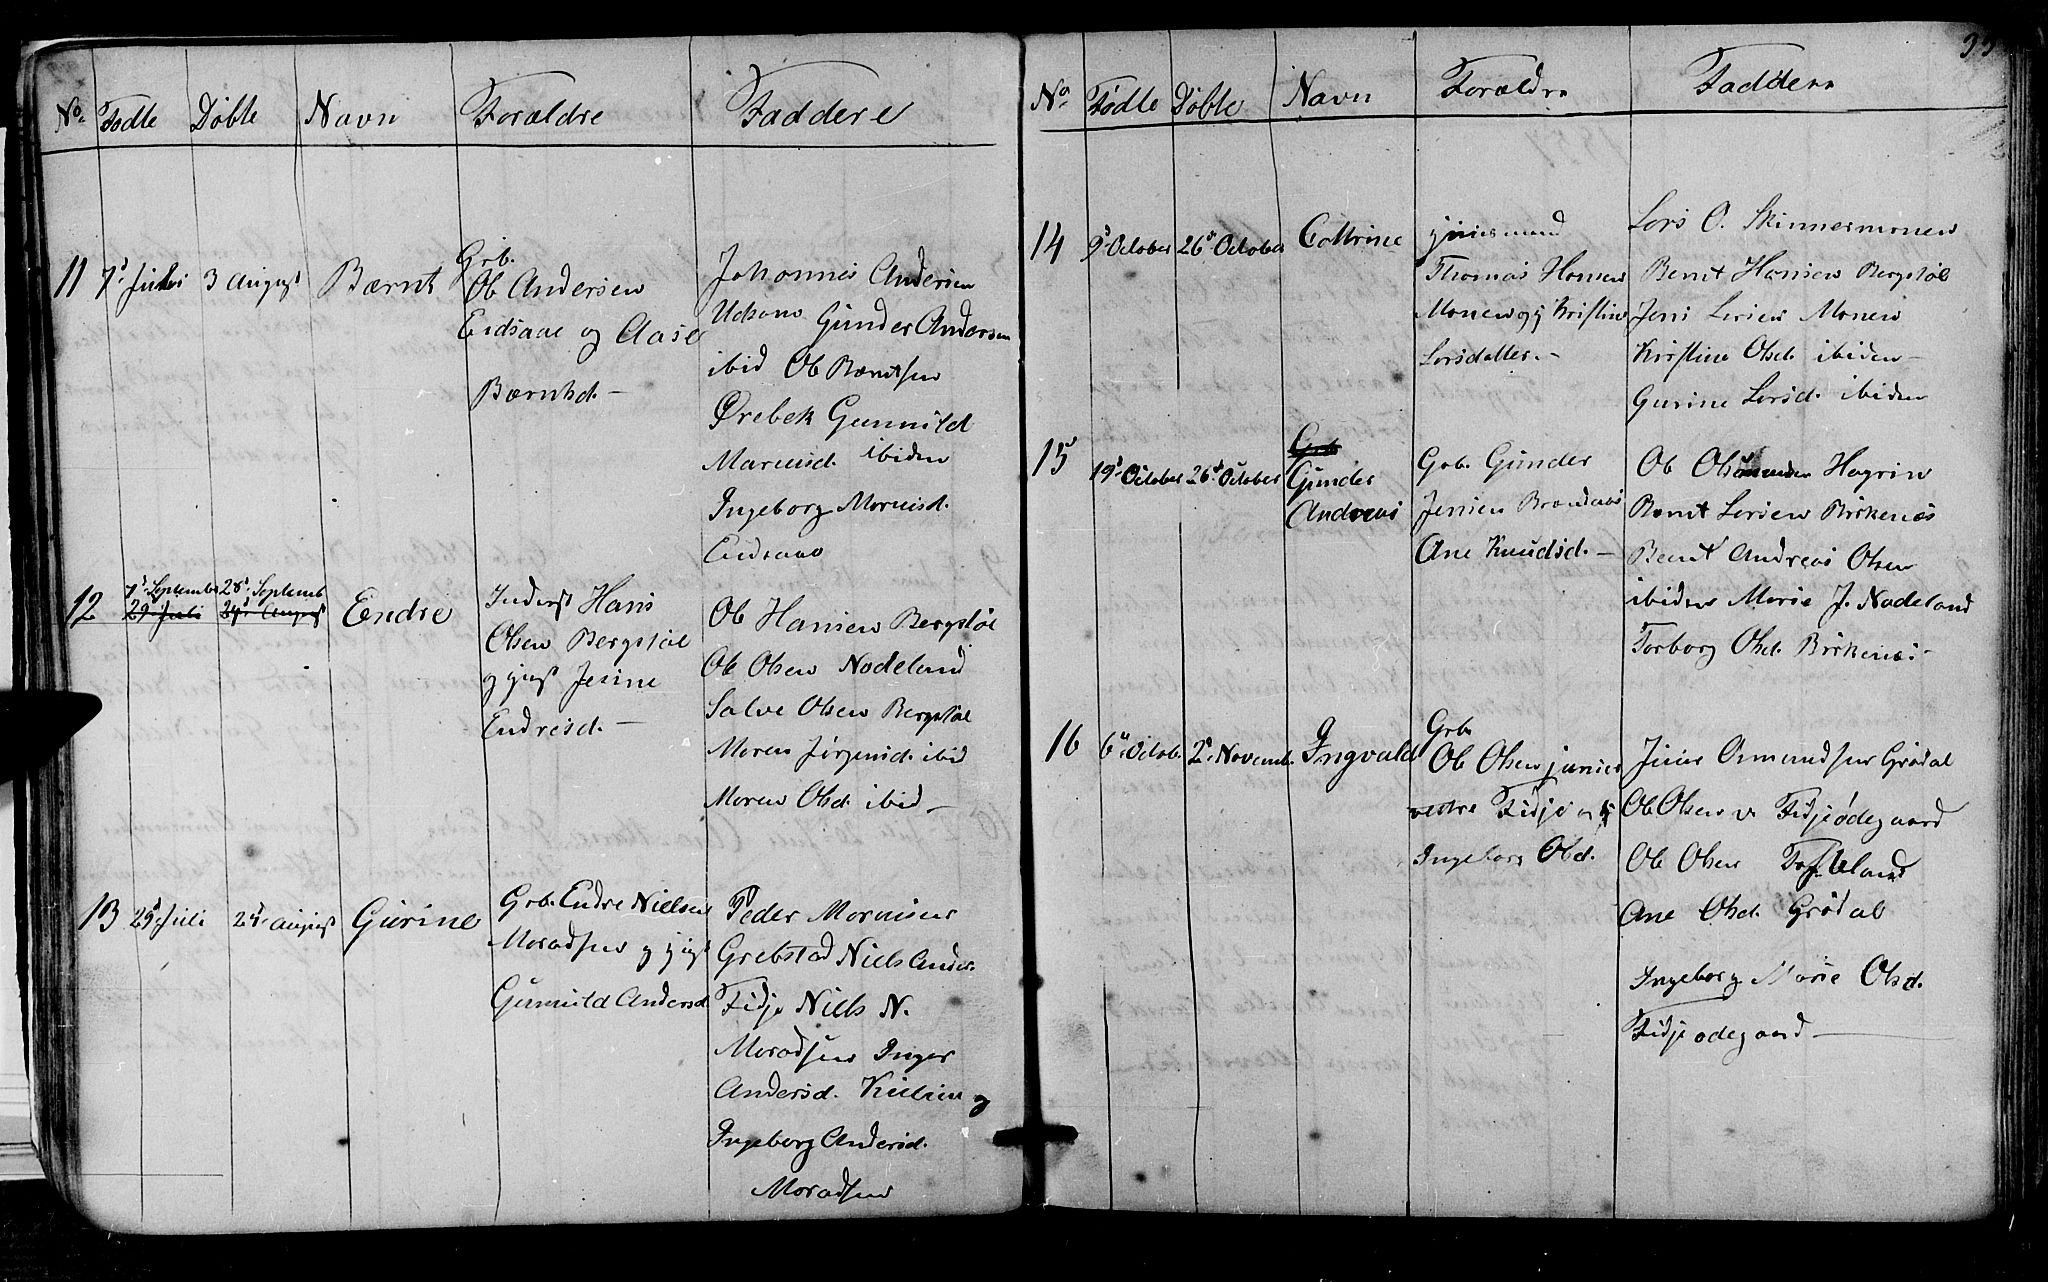 No. Fødte Døbte Navn Forældre Faddere
11 7d Juli 3 August Bærnt Grb.
Ob Andersen
Eidsaae og Aase
Bærnhd. —
Johannes Andersen
Udsons Gunder Andersen
ibid Ob Bærntsen
Ørebek Gunnild
Marcusd. ibiden
Ingeborg Marcusd.
Eidsaae
12 7d Septembr 28d Septemb
29 Juli 24d August Endre Inderst Hans
Olsen Bergstøl
og gift Jesine
Endresd. —
Ob Hansen Bergstøl
Ob Olsen Nodeland
Salve Olsen Bergstøl
Maren Jørgensd. ibid
Maren Olsd. ibid —
13 29d Juli 24d August Gurine Grb. Endre Nielsen
og
Gunnild Andersd.
Peder
Grebstad Niels Ander.
Fidje Niels N.
Inger
Andersd. og
Ingeborg Andersd.
No. Fødte Døbte Navn Forældre Faddere
14 9d October 26de October Cattrine
Thomas Hansen
Monen og Kristine
Larsdatter. —
Lars O. Skinnermonen
Bernt Hansen Bergstøl
Jens Larsen Monen
Kirstine Olsd. ibiden —
Gurine Larsd. ibiden
15 19d October 26d October Grb
Gunder
Andreas
Grb. Gunder
Jensen
Ane Knudsd. —
Ob
Bernt Larsen Birkenes
Bernt Andreas Olsen
ibiden Marie J. Nodeland
Torborg Olsd. Birkenes —
16 6d Octob. 2d Novemb. Ingvald Grb.
Ob Olsen junier
vestre Fidje og
Ingeborg Olsd.
Osmundsen Grødal
Ob Olsen v. Fidjeødegaard
Ob Olsen Tofteland
Ane Olsd. Grødal
Ingeborg Marie Olsd.
Fidjeødegaard —